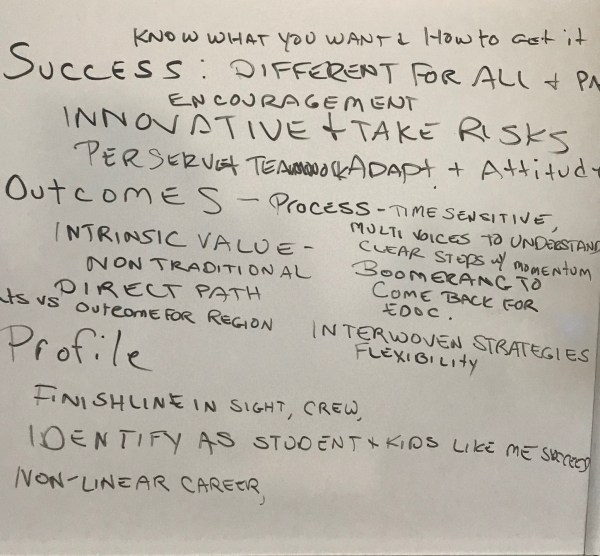 KNOW WHAT YOU WANT & HOW to GET it
SUCCESS: DIFFERENT FOR ALL + PA
ENCOURAGEMENT
INNOVATIVE + TAKE RISKS
PERSERVE + TEAMWORK ADAPT + Attitud
OUTCOMES - PROCESS - TIME SENSITIVE,
MULTI VOICES TO UNDERSTAND
CLEAR STEPS w/ MOMENTUM
BOOMERANG TO
COME BACK FOR
EDOC.
INTRINSIC VALUE -
NON TRADITIONAL
DIRECT PATH
ts vs OUTCOME FOR REGION
INTERWOVEN STRATEGIES
FLEXIBILITY
Profile
FINISHLINE IN SIGHT, CREW,
IDENTIFY AS STUDENT + KIDS LIKE ME SUCCEED
NON-LINEAR CAREER,